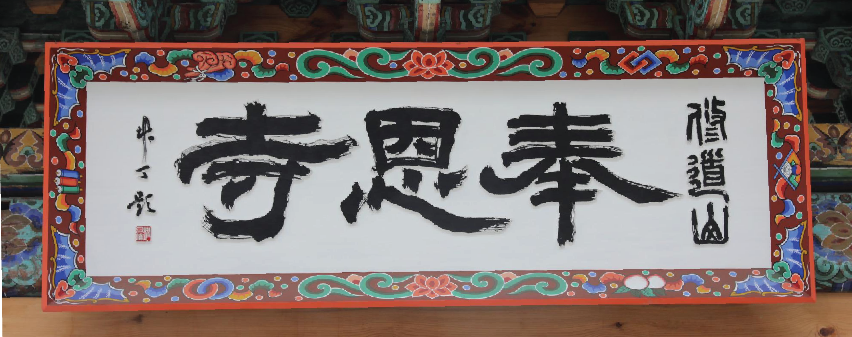 修道山
奉恩寺